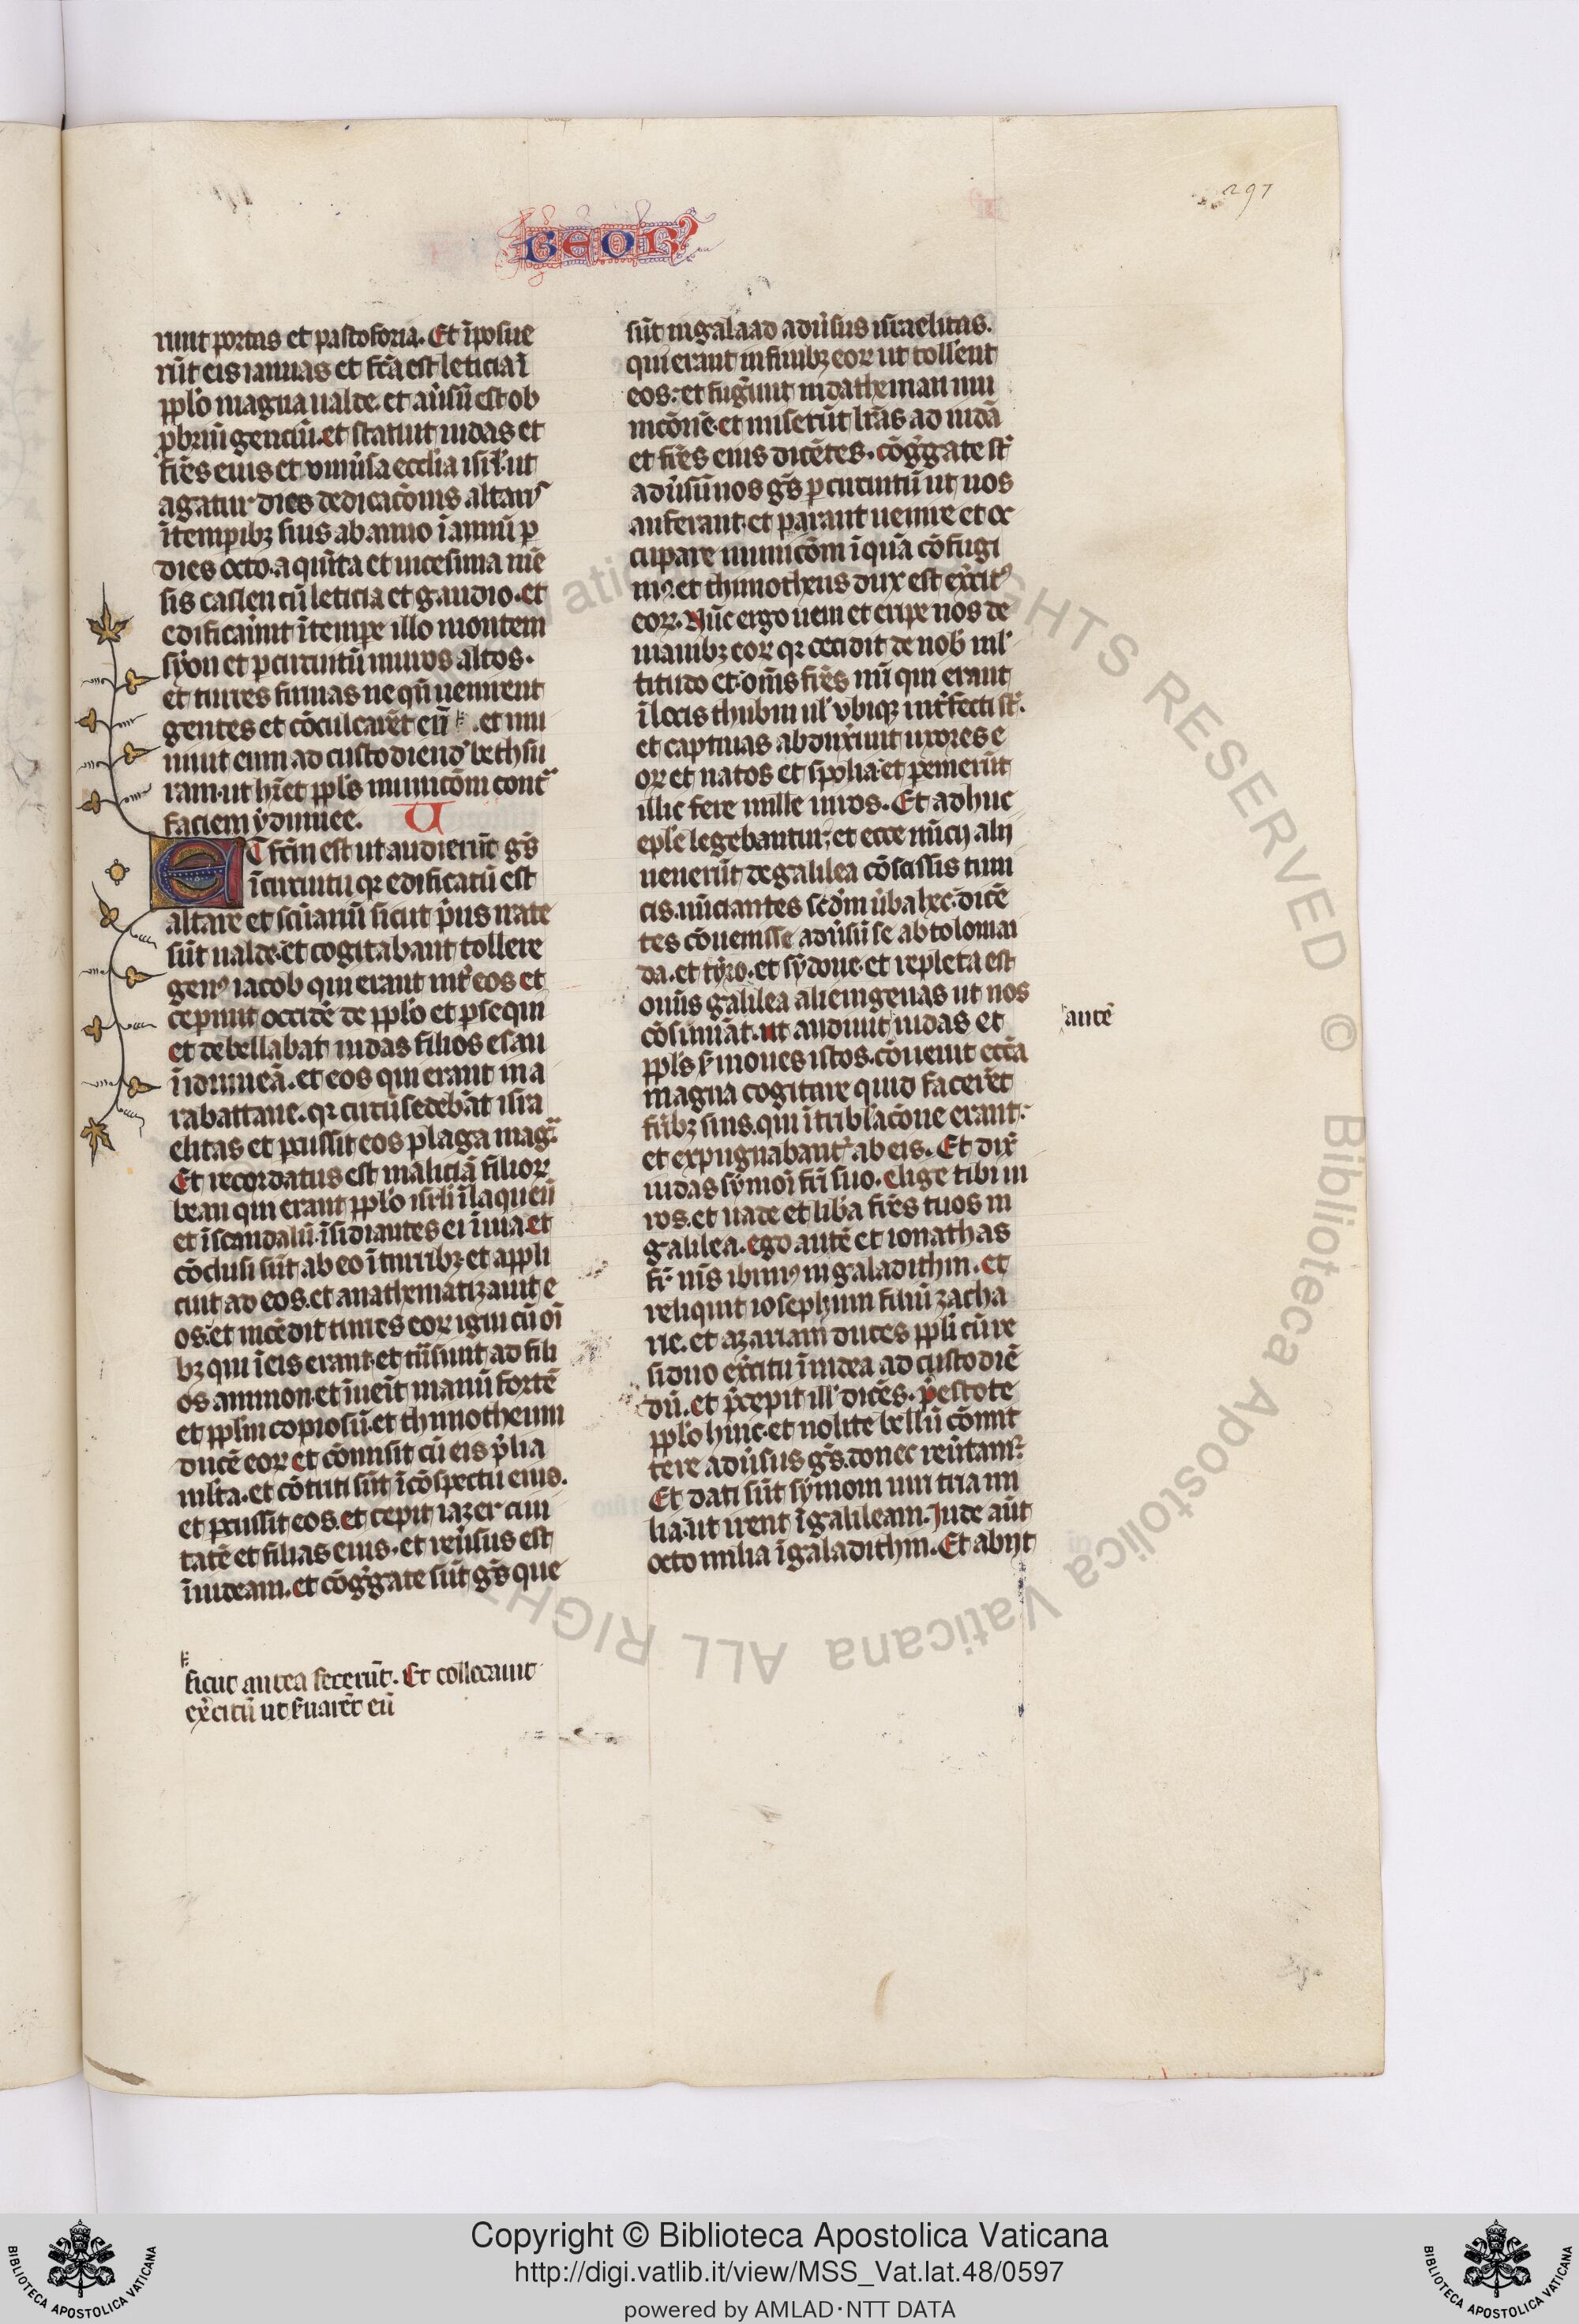 297
BEOR
nunt portas et pastoforia. Et īposue
rūt eis ianuas et fcā est leticia ī
pplo magna ualde. et aūsū est ob
pbriū genciū. et statuit iudas et
frēs eius et vniūsa ecclia isrl. ut
agatur dies dedicacōnis altaris
ī tempibꝫ suis ab anno ī annū p
dies octo. a quīta et uicesima mē
sis casleu cū leticia et gaudio. et
edificauint ī tempe illo montem
syon et p circuitū muros altos.
et turres firmas ne qn̄ uenirent
gentes et cōculcarēt eū . et mu
niuit eum ad custodiend bethsu
ram. ut hret ppls municōm cont
faciem ydumee. V
Et fcm̄ est ut audierūt gs̄
ī circuitu qꝛ edificatū est
altare et scūariū sicut pus irate
sūt ualde. et cogitabant tollere
genꝰ iacob qui erant int eos et
ceperunt occidē de pplo et psequi
et debellabat iudas filios esau
ī idumea. et eos qui erant in a
rabattane. qꝛ circūsedebāt isra
elitas et pcussit eos plaga mag
Et recordatus est maliciā filioꝝ
bean qui erant pplo isrl ī laqueū
et ī scandalū. īsidiantes ei ī uia. et
cōclusi sūt ab eo ī turribꝫ. et appli
cuit ad eos. et anathematizauit e
os. et incēdit turres eoꝝ igni cū oī
bꝫ qui ī eis erant. et trīsiuit ad fili
os ammon. et īueīt manū fortē
et pplm copiosū. et thimotheum
ducē eoꝝ et cōmisit cū eis plia
multa. et cōtriti sūt ī cōspectu eius.
et pcussit eos. et cepit iazer ciui
tatē et filias eius. et reūsus est
ī iudeam. et cōggate sūt gs̄ que
sicut antea fecerūt. Et collocauit
excitū ut seruarēt eū
sūt in galaad adūsus israelitas.
qui erant in finibꝫ eoꝝ ut tollent
eos: et fugerunt in datheman mu
nicōnē. et miserūt lrās ad iudā
et frēs eius dicētes. cōggate st
adūsū nos gs̄ p circuitū ut nos
auferant. et parant uenire et oc
cupare municōm ī quā cōfugi
mꝰ. et thimotheus dux est excitꝰ
eoꝝ. Nūc ergo ueni et eripe nos de
manibꝫ eoꝝ qꝛ cecidit de nob mul
titudo et om̄s frēs nri qui erant
ī locis thubin ul vbiqꝫ intfecti st.
et captiuas abduxunt uxores e
oꝝ et natos et spolia. et pemerūt
illic fere mille uiros. Et adhuc
eple legebantur. et ecce nūcij alij
uenerūt de galilea cōscissis tuni
cis. nūciantes scdm uba hec. dicē
tes cōuenisse adūsū se ab tolomai
da. et tyro. et sydone. et repleta est
omīs galilea alienigenas ut nos
cōsumāt. ut audiuit iudas et
autē
ppls sermones istos. cōuenit ecca
magna cogitare quid facerēt
fribꝫ suis. qui ī tribulacōne erant.
et expugnabant ab eis. Et dix
iudas symoī fri suo. elige tibi ui
ros. et uade et liba frēs tuos in
galilea. ego autē et ionathas
fr ms ibimꝰ in galadithin. et
reliquit iosephum filiū zacha
rie. et azariam duces ppli cū re
siduo excitu ī iudea ad custodiē
dū. et pcepit ill dicēs. pestote
pplo huic. et nolite bellū cōmit
tere adūsus gs̄. donec reūtam
Et dati sūt symom uiri tria mi
lia. ut irent ī galileam. Jude aūt
octo milia ī galadithin. Et abijt
Vaticana ALL RIGHTS RESERVED © Biblioteca Apostolica Vaticana ALL RIGHT
Copyright © Biblioteca Apostolica Vaticana
http://digi.vatlib.it/view/MSS_Vat.lat.48/0597
powered by AMLAD·NTT DATA
BIBLIOTECA APOSTOLICA VATICANA
BIBLIOTECA APOSTOLICA VATICANA